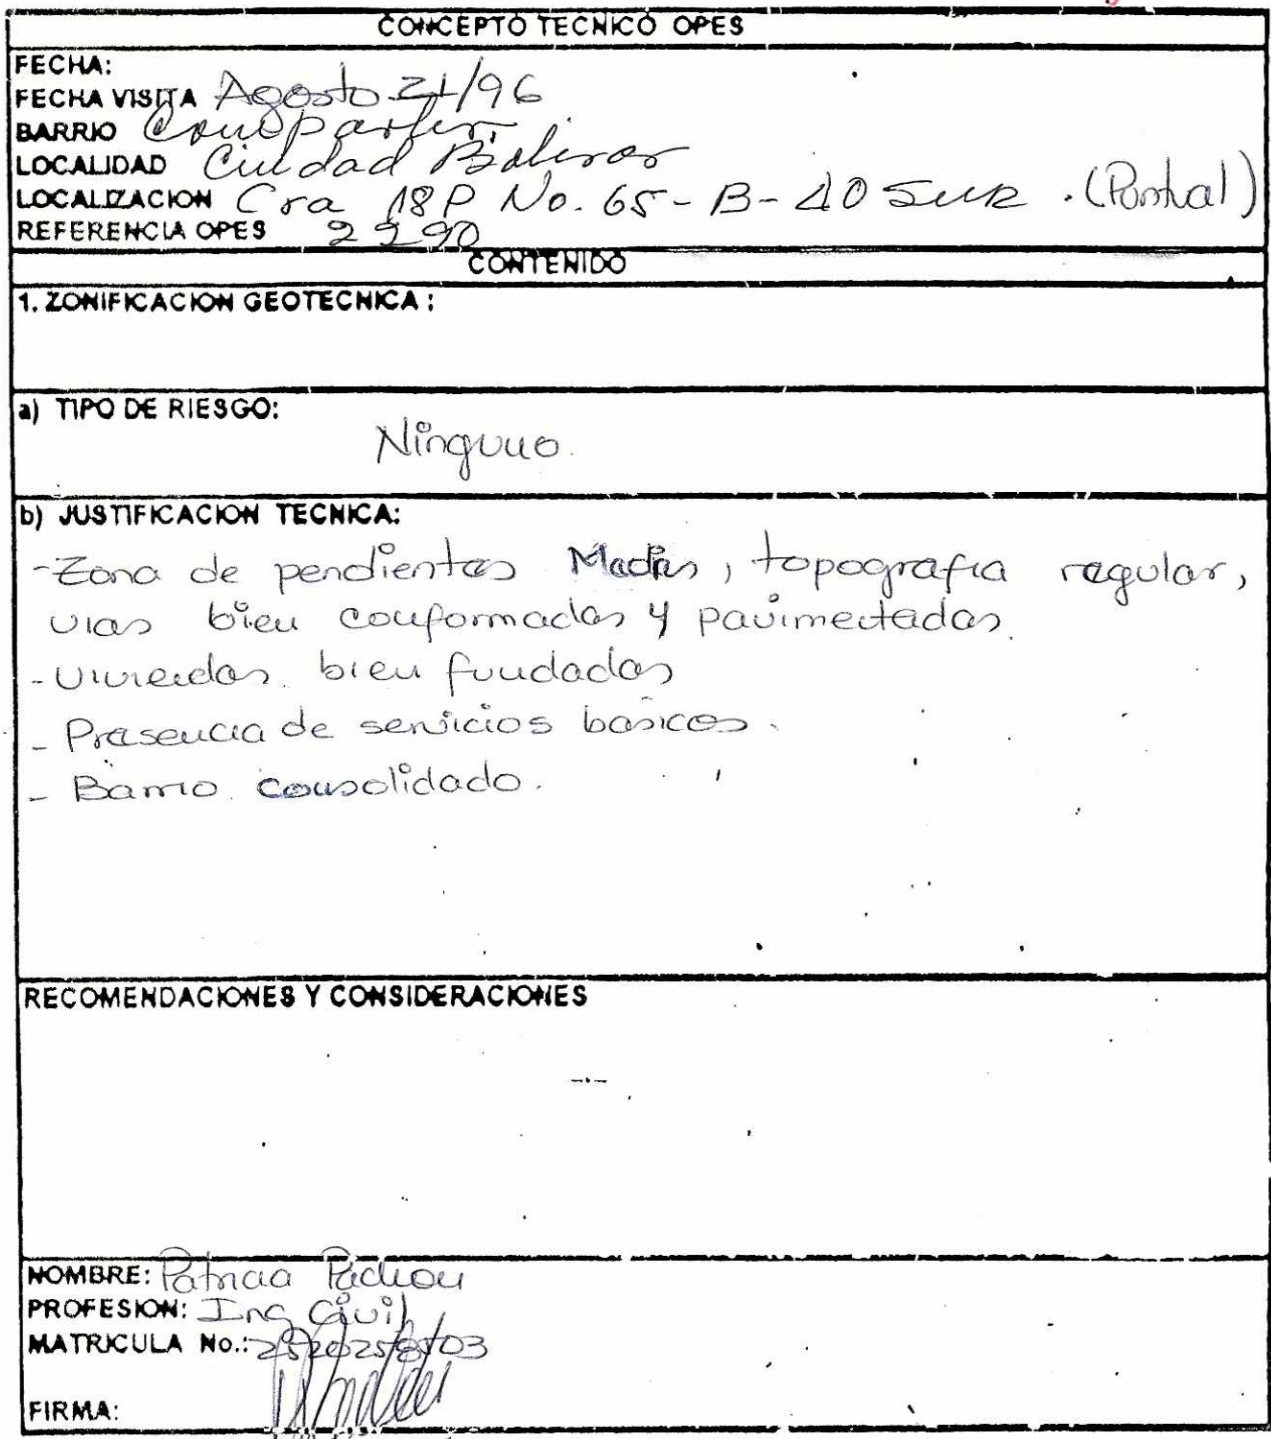 CONCEPTO TECNICO OPES
FECHA:
FECHA VISITA Agosto 21/96
BARRIO Compartir
LOCALIDAD Ciudad Bolivar
LOCALIZACION Cra 18P No. 65-B-40 Sur. (Puntual)
REFERENCIA OPES 2290
CONTENIDO
1. ZONIFICACION GEOTECNICA :
a) TIPO DE RIESGO:
Ninguno.
b) JUSTIFICACION TECNICA:
- Zona de pendientes Medias, topografia regular,
vias bien conformadas y pavimentadas.
- Viviendas bien fundadas
- Presencia de servicios basicos.
- Barrio consolidado.
RECOMENDACIONES Y CONSIDERACIONES
NOMBRE: Patricia Pachon
PROFESION: Ing Civil
MATRICULA No.:
FIRMA: